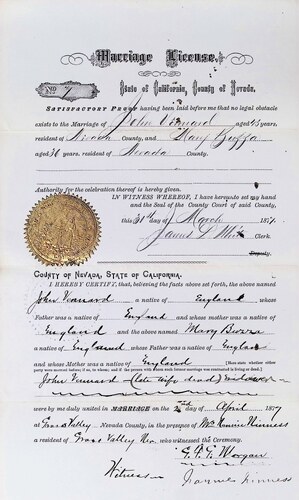 Marriage License.
No 7 State of California, County of Nevada.
SATISFACTORY PROOF having been laid before me that no legal obstacle
exists to the Marriage of John aged 45 years,
resident of Nevada County, and Mary
aged 30 years, resident of Nevada County.
Authority for the celebration thereof is hereby given.
IN WITNESS WHEREOF, I have hereunto set my hand
and the Seal of the County Court of said County,
this 31st day of March 1877
James D Clerk.
Deputy.
COUNTY OF NEVADA, STATE OF CALIFORNIA.
I HEREBY CERTIFY, that, believing the facts above set forth, the above named
John a native of England whose
Father was a native of England and whose mother was a native of
England and the above named Mary
a native of England whose Father was a native of England
and whose Mother was a native of England
John (late wife dead)
were by me duly united in MARRIAGE on the 2nd day of April 1877
at Grass Valley Nevada County, in the presence of
a resident of Grass Valley Nev. who witnessed the Ceremony.
Morgan
Witness